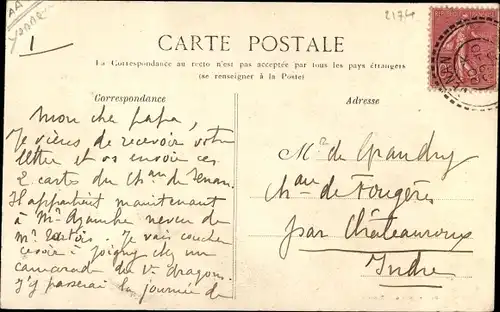 AA
Yonne
1
2174
CARTE POSTALE
La Correspondance au recto n'est pas acceptée par tous les pays étrangers
(se renseigner à la Poste)
Correspondance
Adresse
Mon cher papa,
Je viens de recevoir votre
letter et vs envoie ces
2 cartes du Chau de Senan.
Il appartient maintenant
à Mr neveu de
Mr . Je vais coucher
ce soir à Joigny chez un
camarade du Ve dragons.
J'y passerai la journée de
Mr de Grandry
Chau de Fougères
par Châteauroux
Indre